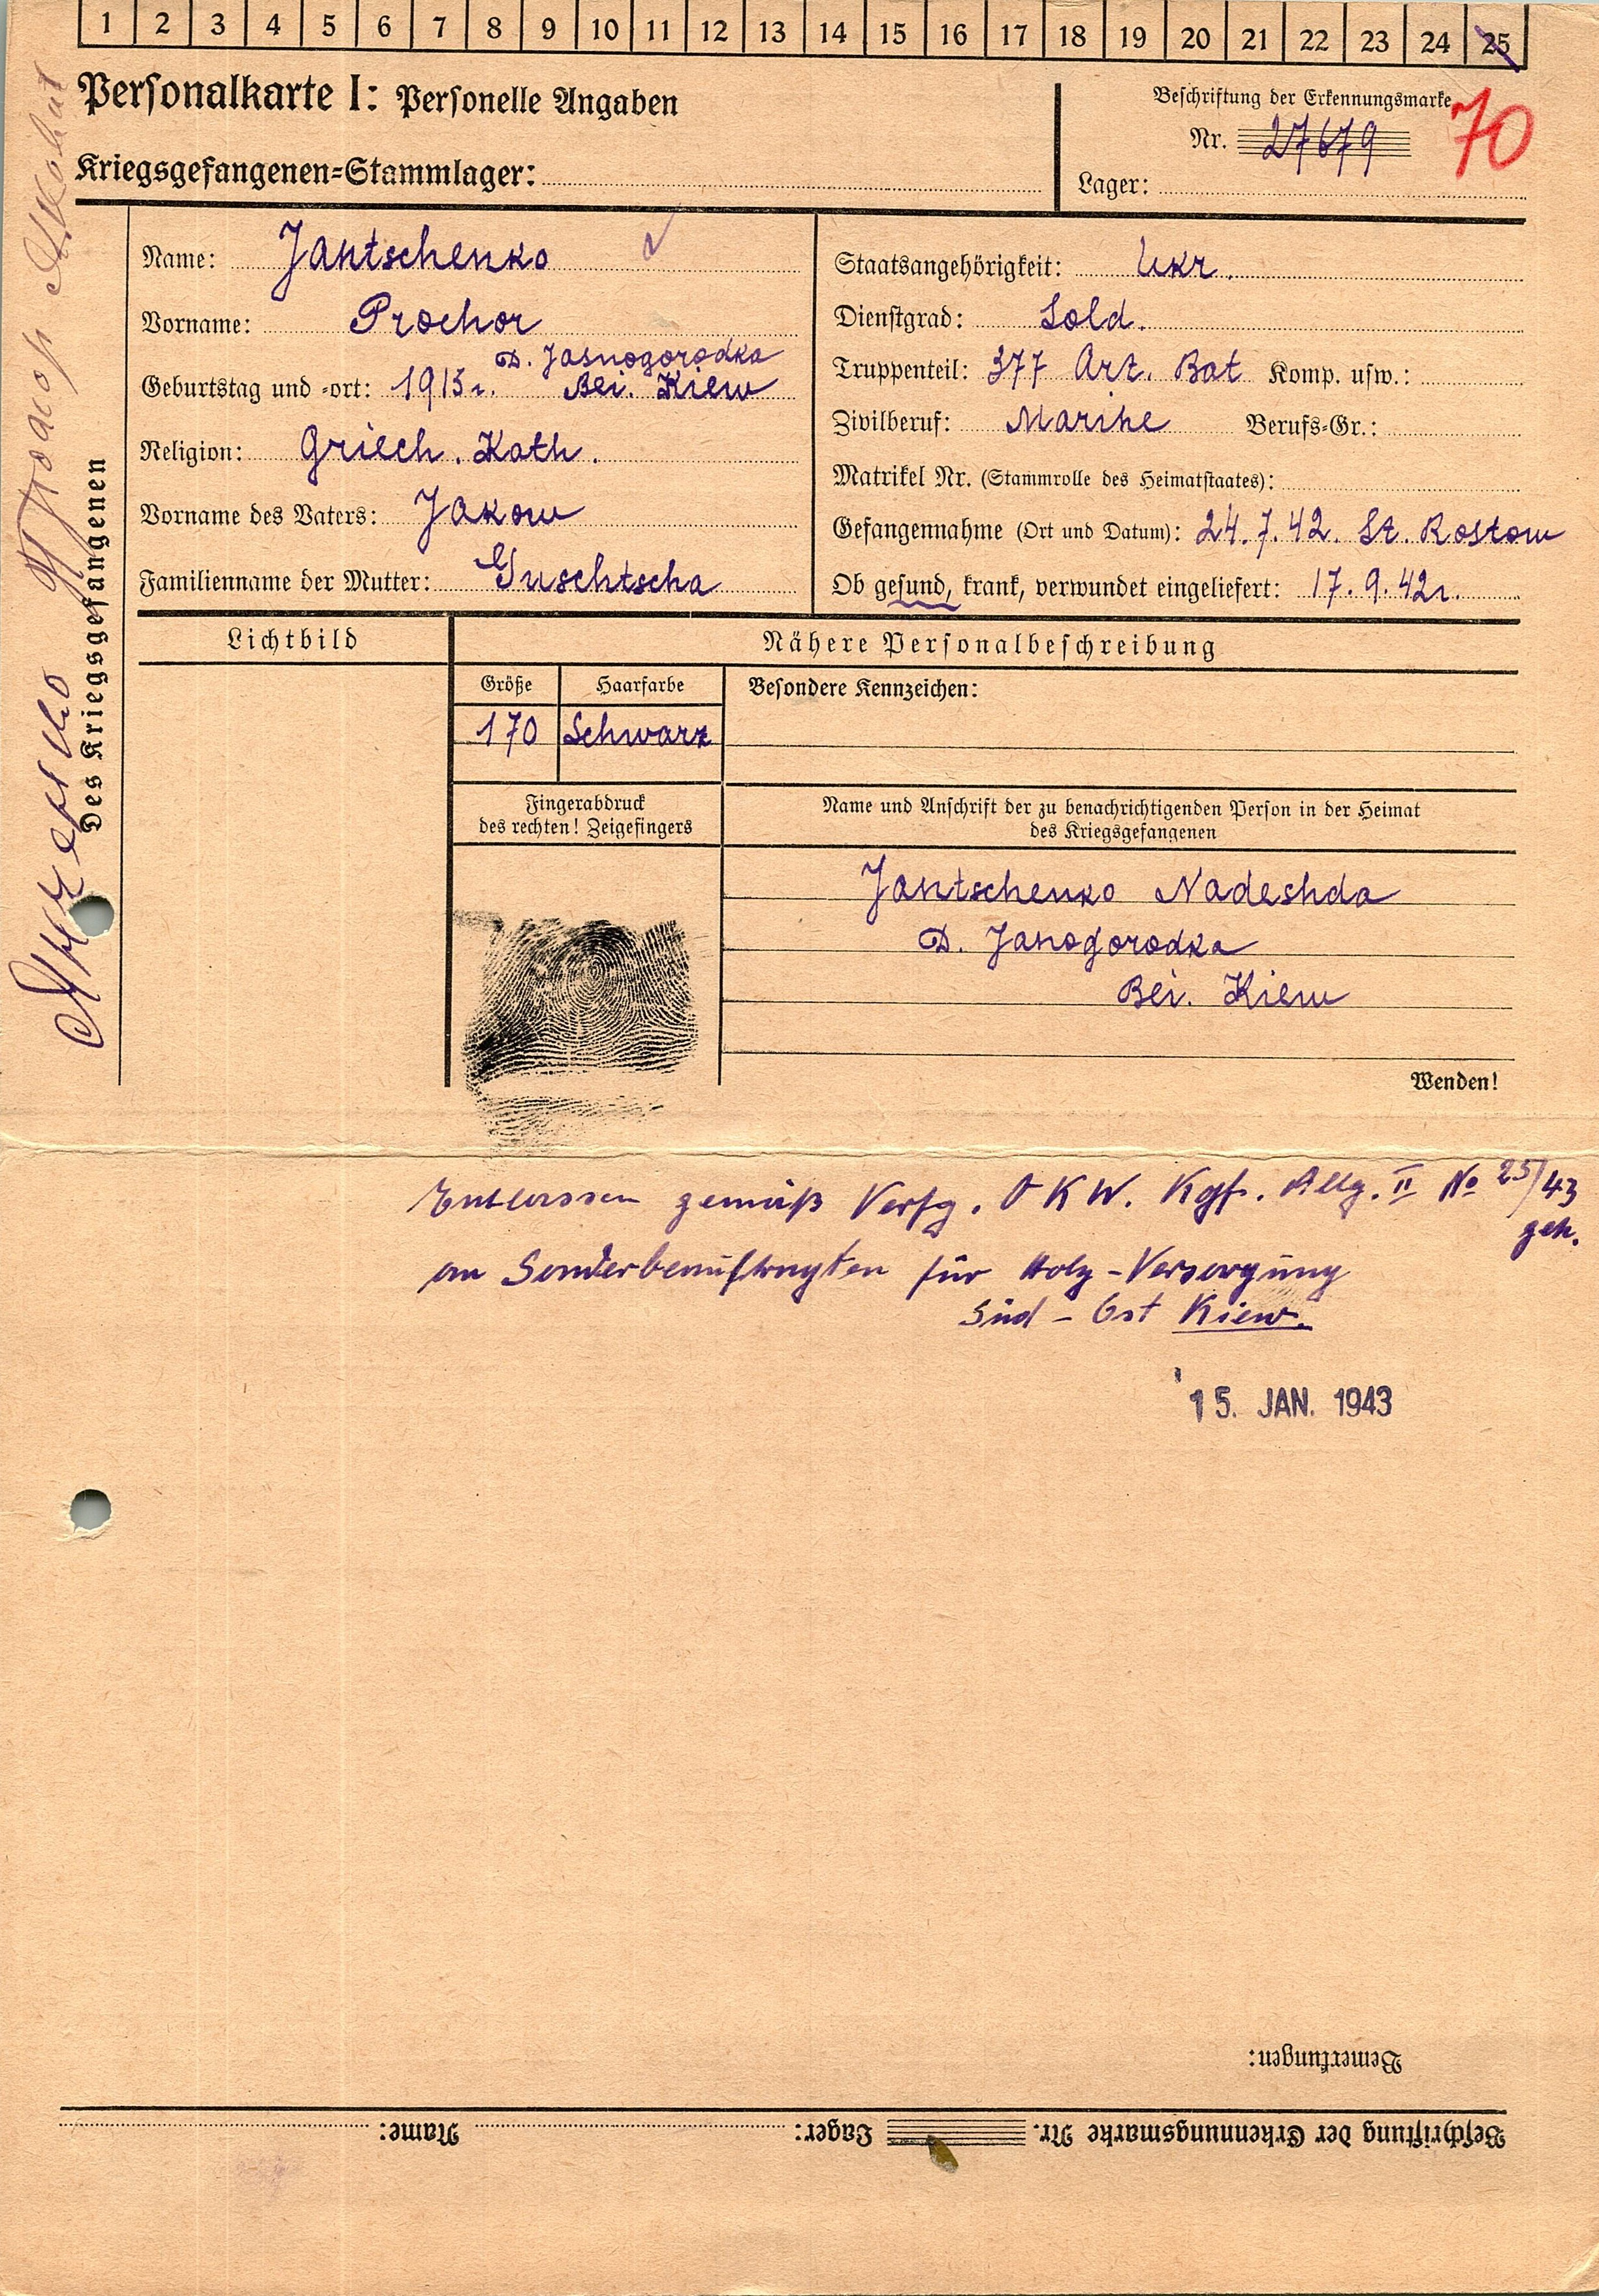 1 2 3 4 5 6 7 8 9 10 11 12 13 14 15 16 17 18 19 20 21 22 23 24 25
Personalkarte I: Personelle Angaben
Kriegsgefangenen-Stammlager:
Beschriftung der Erkennungsmarke
Nr. 27679
70
Lager:
Des Kriegsgefangenen
Name: Jantschenko
Vorname: Prochor
D. Jasnogorodka
Geburtstag und -ort: 1915 г. Bei. Kiew
Religion: Griech. Kath.
Vorname des Vaters: Jakow
Familienname der Mutter: Guschtscha
Staatsangehörigkeit: Ukr.
Dienstgrad: Sold.
Truppenteil: 377 Art. Bat Komp. usw.:
Zivilberuf: Marine Berufs-Gr.:
Matrikel Nr. (Stammrolle des Heimatstaates):
Gefangennahme (Ort und Datum): 24.7.42. St. Rostow
Ob gesund, krank, verwundet eingeliefert: 17.9.42г.
Lichtbild
Nähere Personalbeschreibung
Größe
Haarfarbe
Besondere Kennzeichen:
170
Schwarz
Fingerabdruck
des rechten! Zeigefingers
Name und Anschrift der zu benachrichtigenden Person in der Heimat
des Kriegsgefangenen
Jantschenko Nadeshda
D. Janogorodka
Bei. Kiew
Wenden!
Entlassen gemäß Verfg. OKW. Kgf. Allg. II No 25/43
geh.
an Sonderbeauftragten für Holz-Versorgung
Süd-Ost Kiew.
15. JAN. 1943
Bemerkungen:
Beschriftung der Erkennungsmarke Nr. Lager: Name: